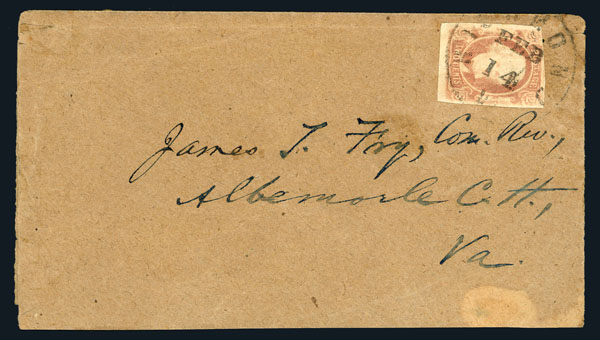 RICHMOND
FEB
14
James T. Fry, Com. Rev.,
Albemarle C.H.,
Va.